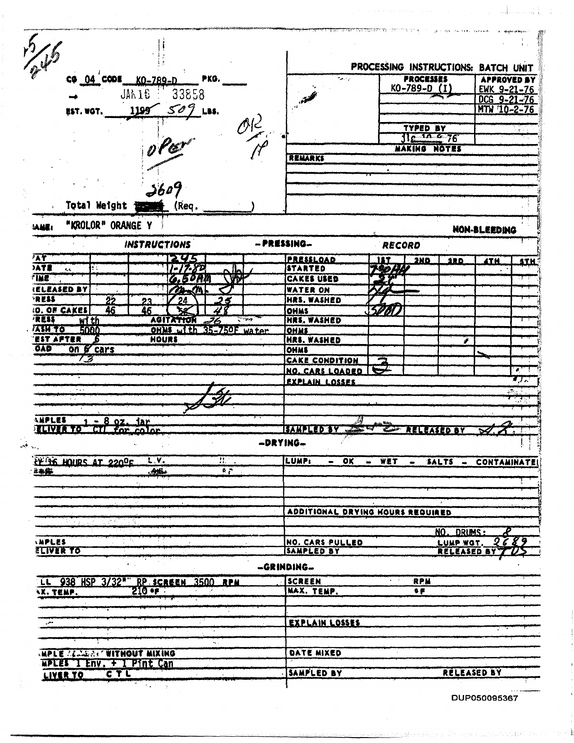 245
PROCESSING INSTRUCTIONS: BATCH UNIT
CG 04 CODE KO-789-D PKG.
PROCESSES APPROVED BY
KO-789-D (I) EWK 9-21-76
JAN 16 33858
DCG 9-21-76
EST. WGT. 1199 509 LBS.
MTW 10-2-76
TYPED BY
OK
MAKING NOTES
OPEN
REMARKS
2609
Total Weight (Req. )
NAME: "KROLOR" ORANGE Y NON-BLEEDING
INSTRUCTIONS -PRESSING- RECORD
VAT 245 PRESSLOAD 1ST 2ND 3RD 4TH 5TH
DATE 1-17-80 STARTED 7:30 AM
TIME 6:50 AM CAKES USED
RELEASED BY WATER ON
PRESS 22 23 24 25 HRS. WASHED
NO. OF CAKES 46 46 48 OHMS 5000
PRESS with AGITATION 26 HRS. WASHED
WASH TO 5000 OHMS with 35-750F water OHMS
TEST AFTER 6 HOURS HRS. WASHED
LOAD on 6 cars OHMS
13 CAKE CONDITION
NO. CARS LOADED 3
EXPLAIN LOSSES
SAMPLES 1 - 8 oz. jar
DELIVER TO CTL for color SAMPLED BY RELEASED BY
-DRYING-
HOURS AT 220°F L.V. LUMP: - OK - WET - SALTS - CONTAMINATE
°F
ADDITIONAL DRYING HOURS REQUIRED
NO. DRUMS: 8
SAMPLES NO. CARS PULLED LUMP WGT. 2689
DELIVER TO SAMPLED BY RELEASED BY TDS
-GRINDING-
LL 938 HSP 3/32" RP SCREEN 3500 RPM SCREEN RPM
MAX. TEMP. 210 °F MAX. TEMP. °F
EXPLAIN LOSSES
SAMPLE WITHOUT MIXING DATE MIXED
SAMPLES 1 Env. + 1 Pint Can
DELIVER TO C T L SAMPLED BY RELEASED BY
DUP050095367